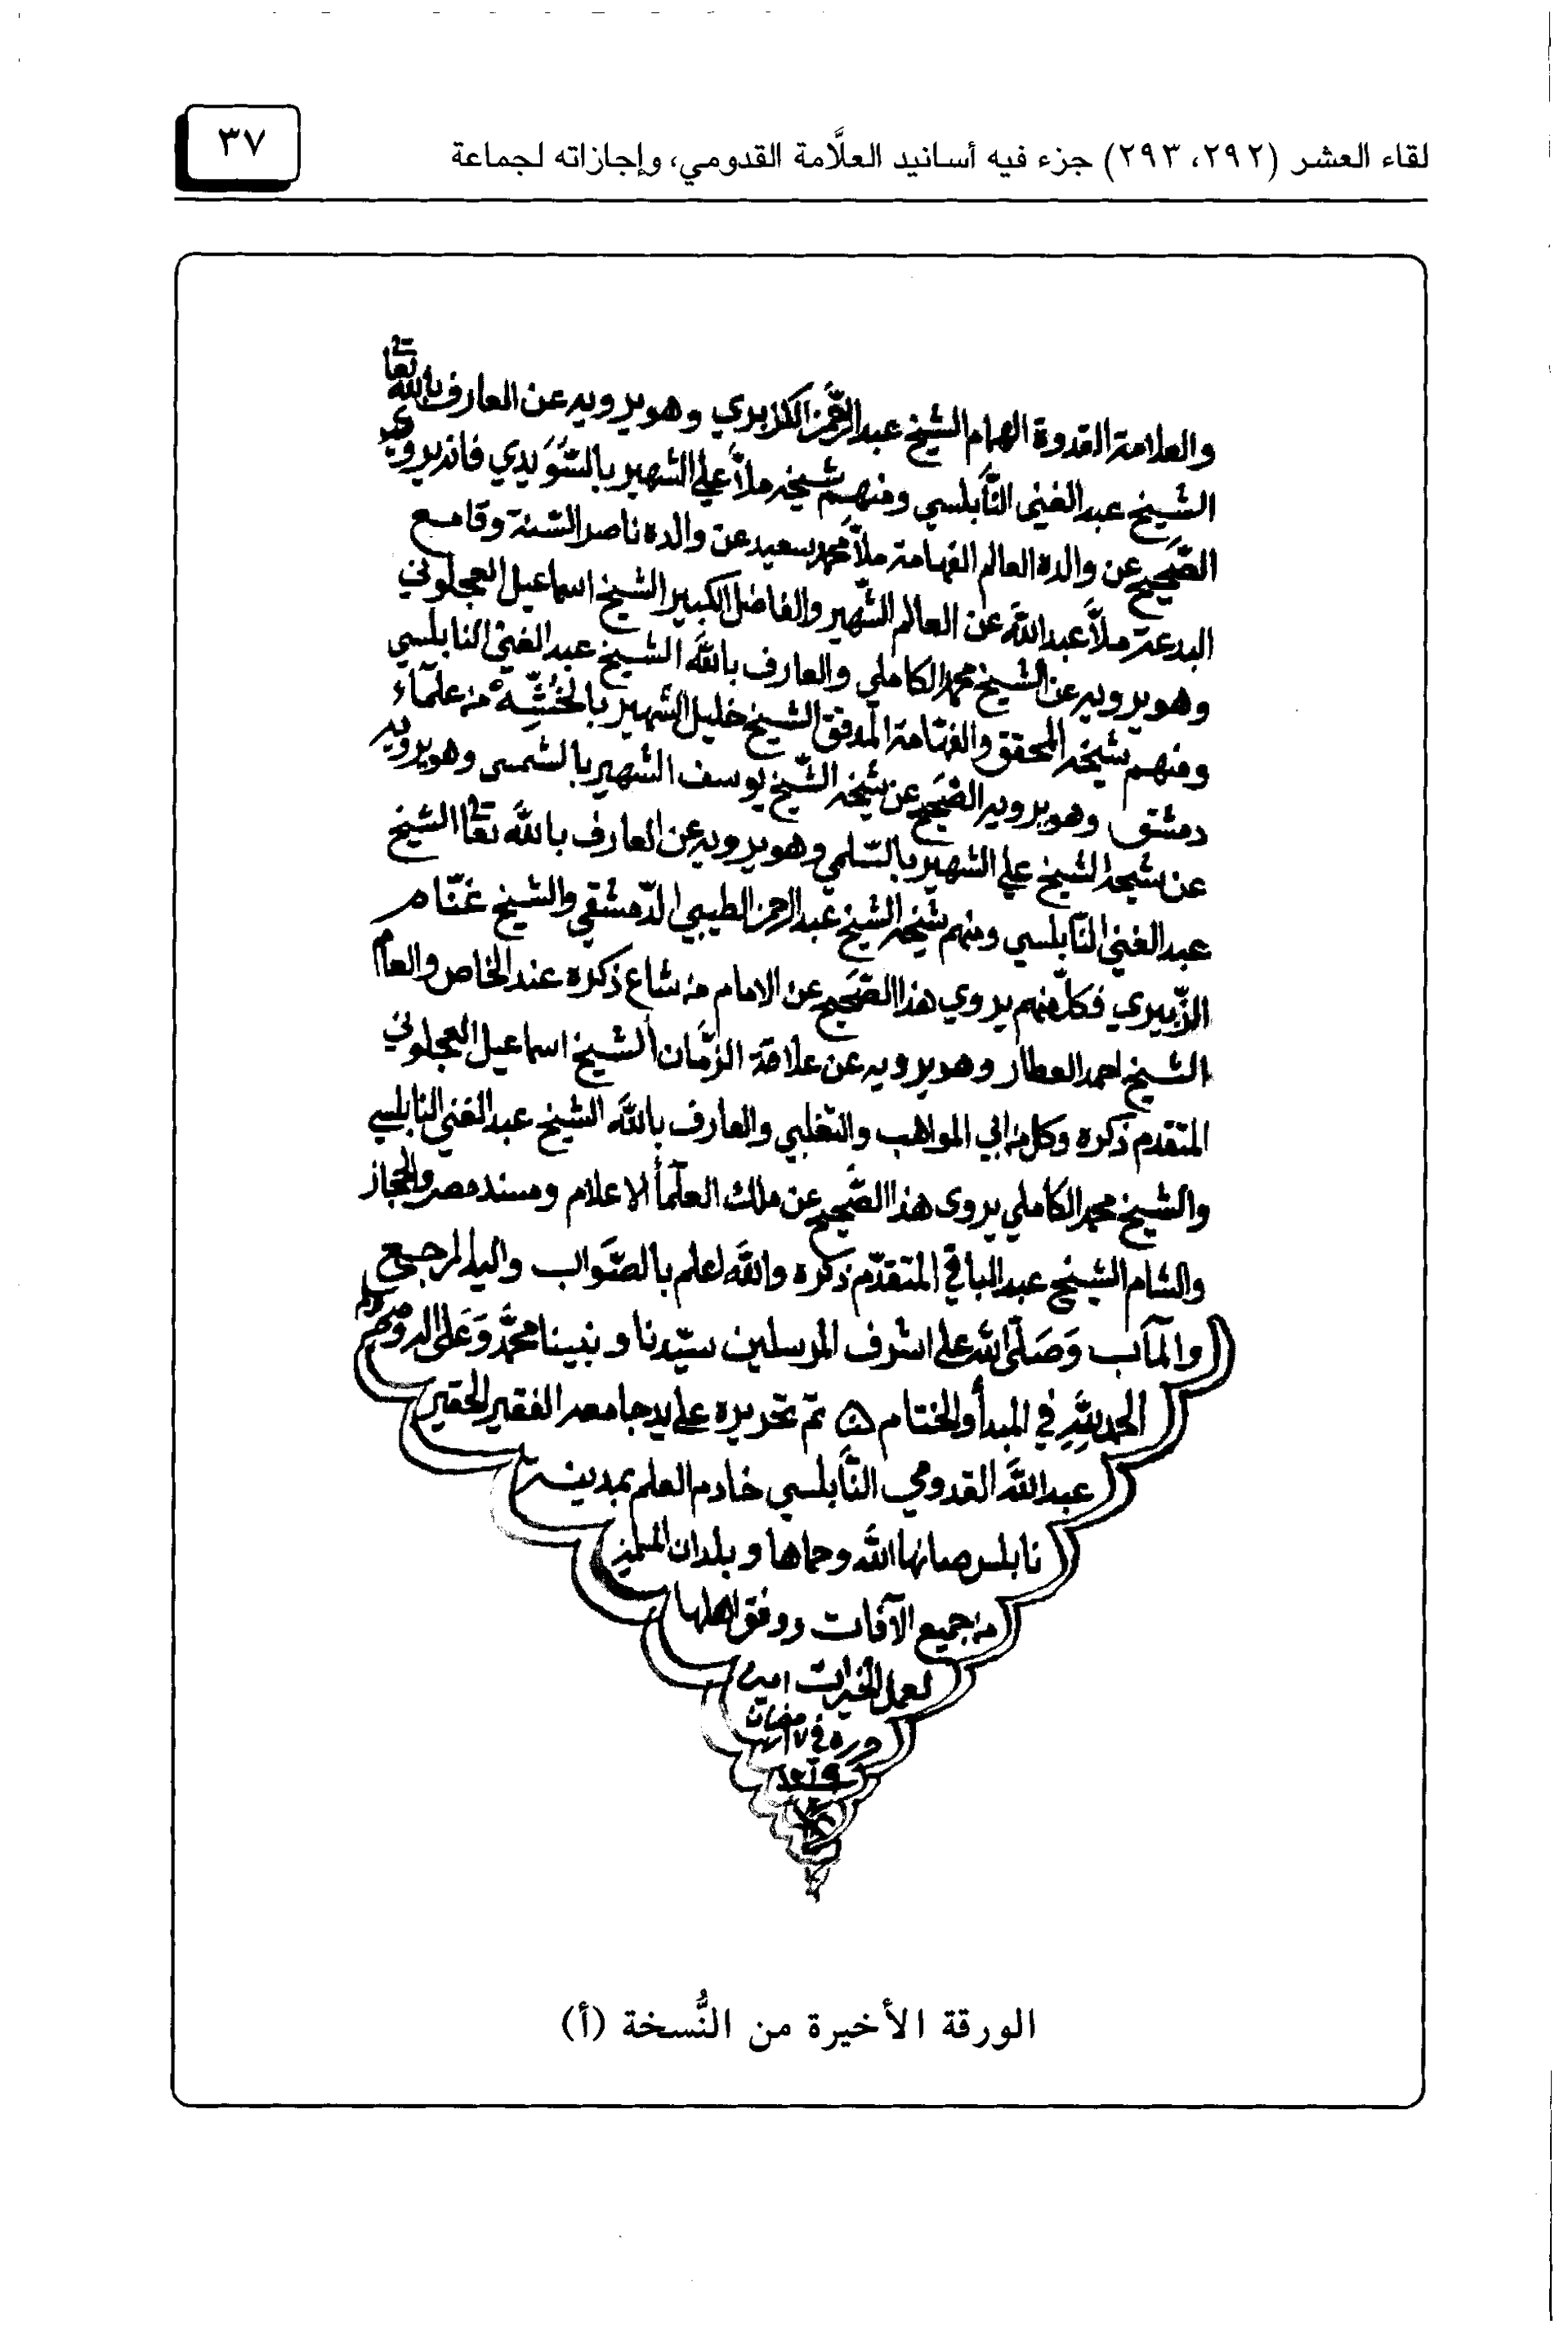 لقاء العشر (٢٩٢، ٢٩٣) جزء فيه أسانيد العلَّامة القدومي، وإجازاته لجماعة
٣٧
والعلامة القدوة الهمام الشيخ عبد الرَّحمن الكزبري وهو يرويه عن العارف بالله تعا
الشيخ عبد الغني النَّابلسي ومنهم شيخه ملاَّ علي الشهير بالسُّوَيدي فانه يروي
الصَّحيح عن والده العالم الفهامة ملاَّ محمد سعيد عن والده ناصر السّنة وقامع
البدعة ملاَّ عبد اللّه عن العالم الشّهير والفاضل الكبير الشيخ اسماعيل العجلوني
وهو يرويه عن الشيخ محمد الكاملي والعارف باللّه الشيخ عبد الغني النابلسي
ومنهم شيخه المحقق والفهّامة المدقق الشيخ خليل الشهير بالخُشّة من علمآء
دمشق وهو يرويه الصَّحيح عن شيخه الشّيخ يوسف الشهير بالشمسي وهو يرويه
عن شيخه الشيخ علي الشهير بالسّلمي وهو يرويه عن العارف باللّه تعا الشيخ
عبد الغني النّابلسي ومنهم شيخه الشيخ عبد الرحمن الطيبي الدّمشقي والشيخ غنّام
الزّبيري فكلّ منهم يروي هذا الصّحيح عن الامام من شاع ذكره عند الخاص والعام
الشيخ احمد العطار وهو يرويه عن علامة الزَّمان الشيخ اسماعيل العجلوني
المتقدم ذكره وكل من ابي المواهب والتغلبي والعارف باللّه الشيخ عبد الغني النابلسي
والشيخ محمد الكاملي يروى هذا الصَّحيح عن ملك العلمآ الاعلام ومسند مصر والحجاز
والشام الشيخ عبد الباقي المتقدّم ذكره واللّه اعلم بالصَّواب واليه المرجع
والمآب وَصَلّى اللّه على اشرف المرسلين سيّدنا ونبينا محمَّد وَعَلى اله وصحبه وسلم
الحمد للّهِ في المبدأ والختام تمّ تحريره على يد جامعه الفقير الحقير
عبد اللّه القدومي النَّابلسي خادم العلم بمدينة
نابلس صانها اللّه وحماها وبلدان المسلمين
من جميع الآفات ووفق اهلها
لعمل الخيرات امين
حرره في ٧ رمضان
١٣١٩
الورقة الأخيرة من النُّسخة (أ)